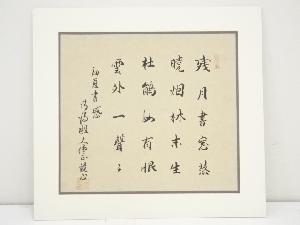 残月書窓
暁烟林未生
杜鵑如有恨
雲外一聲々
初夏書感